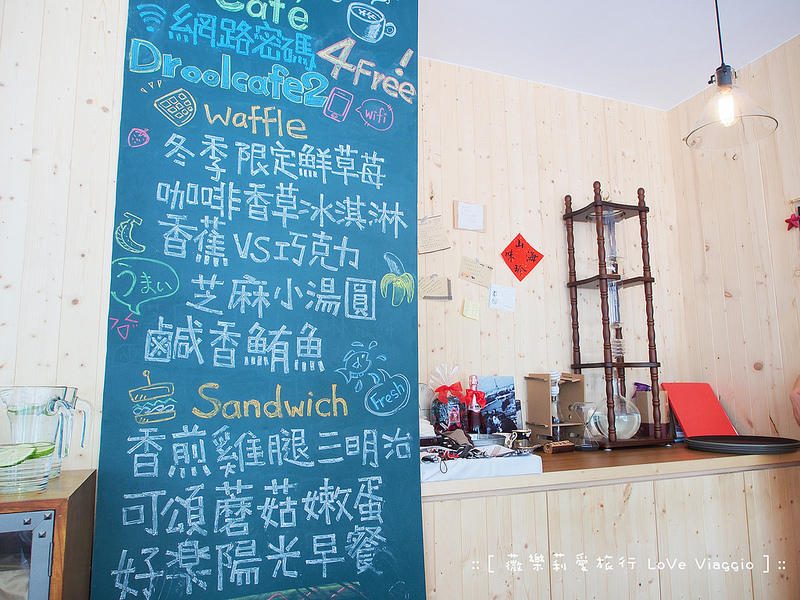 Cafe
網路密碼
4 Free!
Droolcafe2
wifi
Waffle
冬季限定鮮草莓
咖啡香草冰淇淋
香蕉VS巧克力
うまい
芝麻小湯圓
鹹香鮪魚
Fresh
Sandwich
香煎雞腿三明治
可頌蘑菇嫩蛋
好楽陽光早餐
山海
味
::[ 薇樂莉愛旅行 LoVe Viaggio ]::